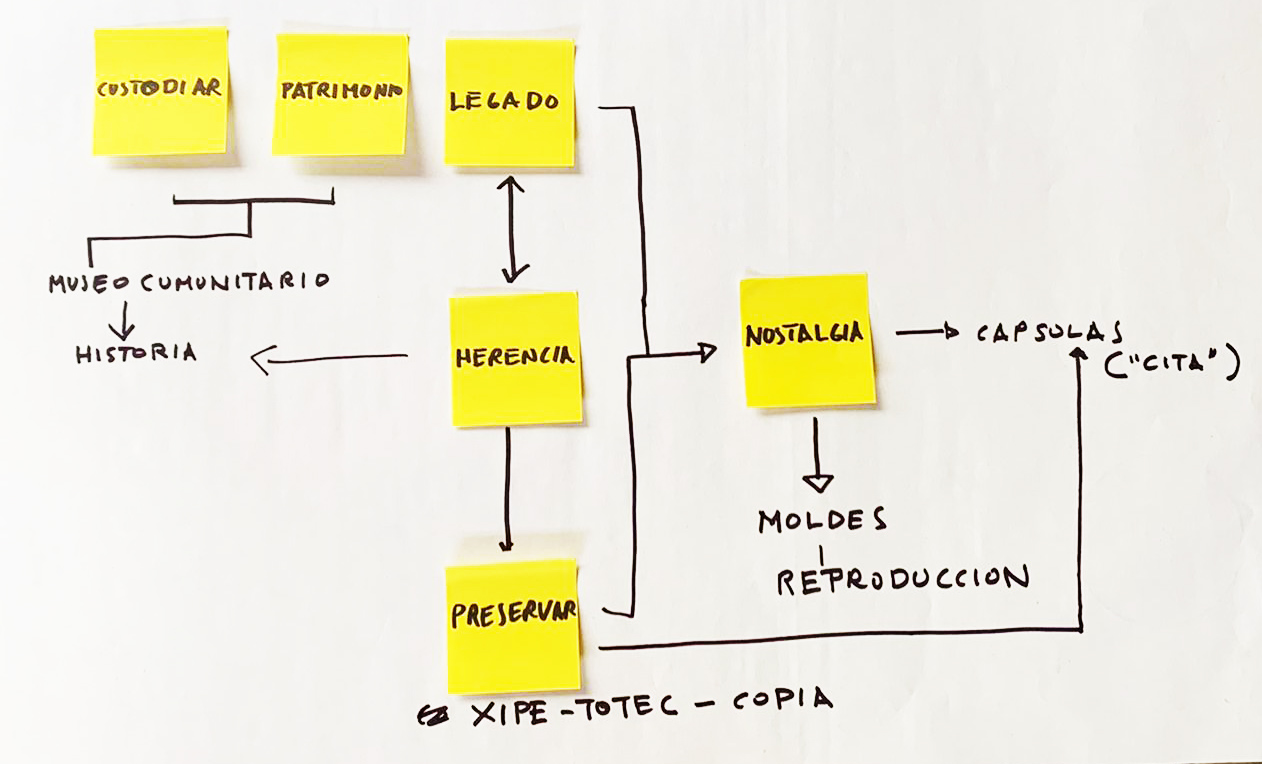 CUSTODIAR
PATRIMONIO
LEGADO
MUSEO CUMUNITARIO
HISTORIA
HERENCIA
NOSTALGIA
CAPSULAS
("CITA")
MOLDES
REPRODUCCION
PRESERVAR
XIPE-TOTEC - COPIA